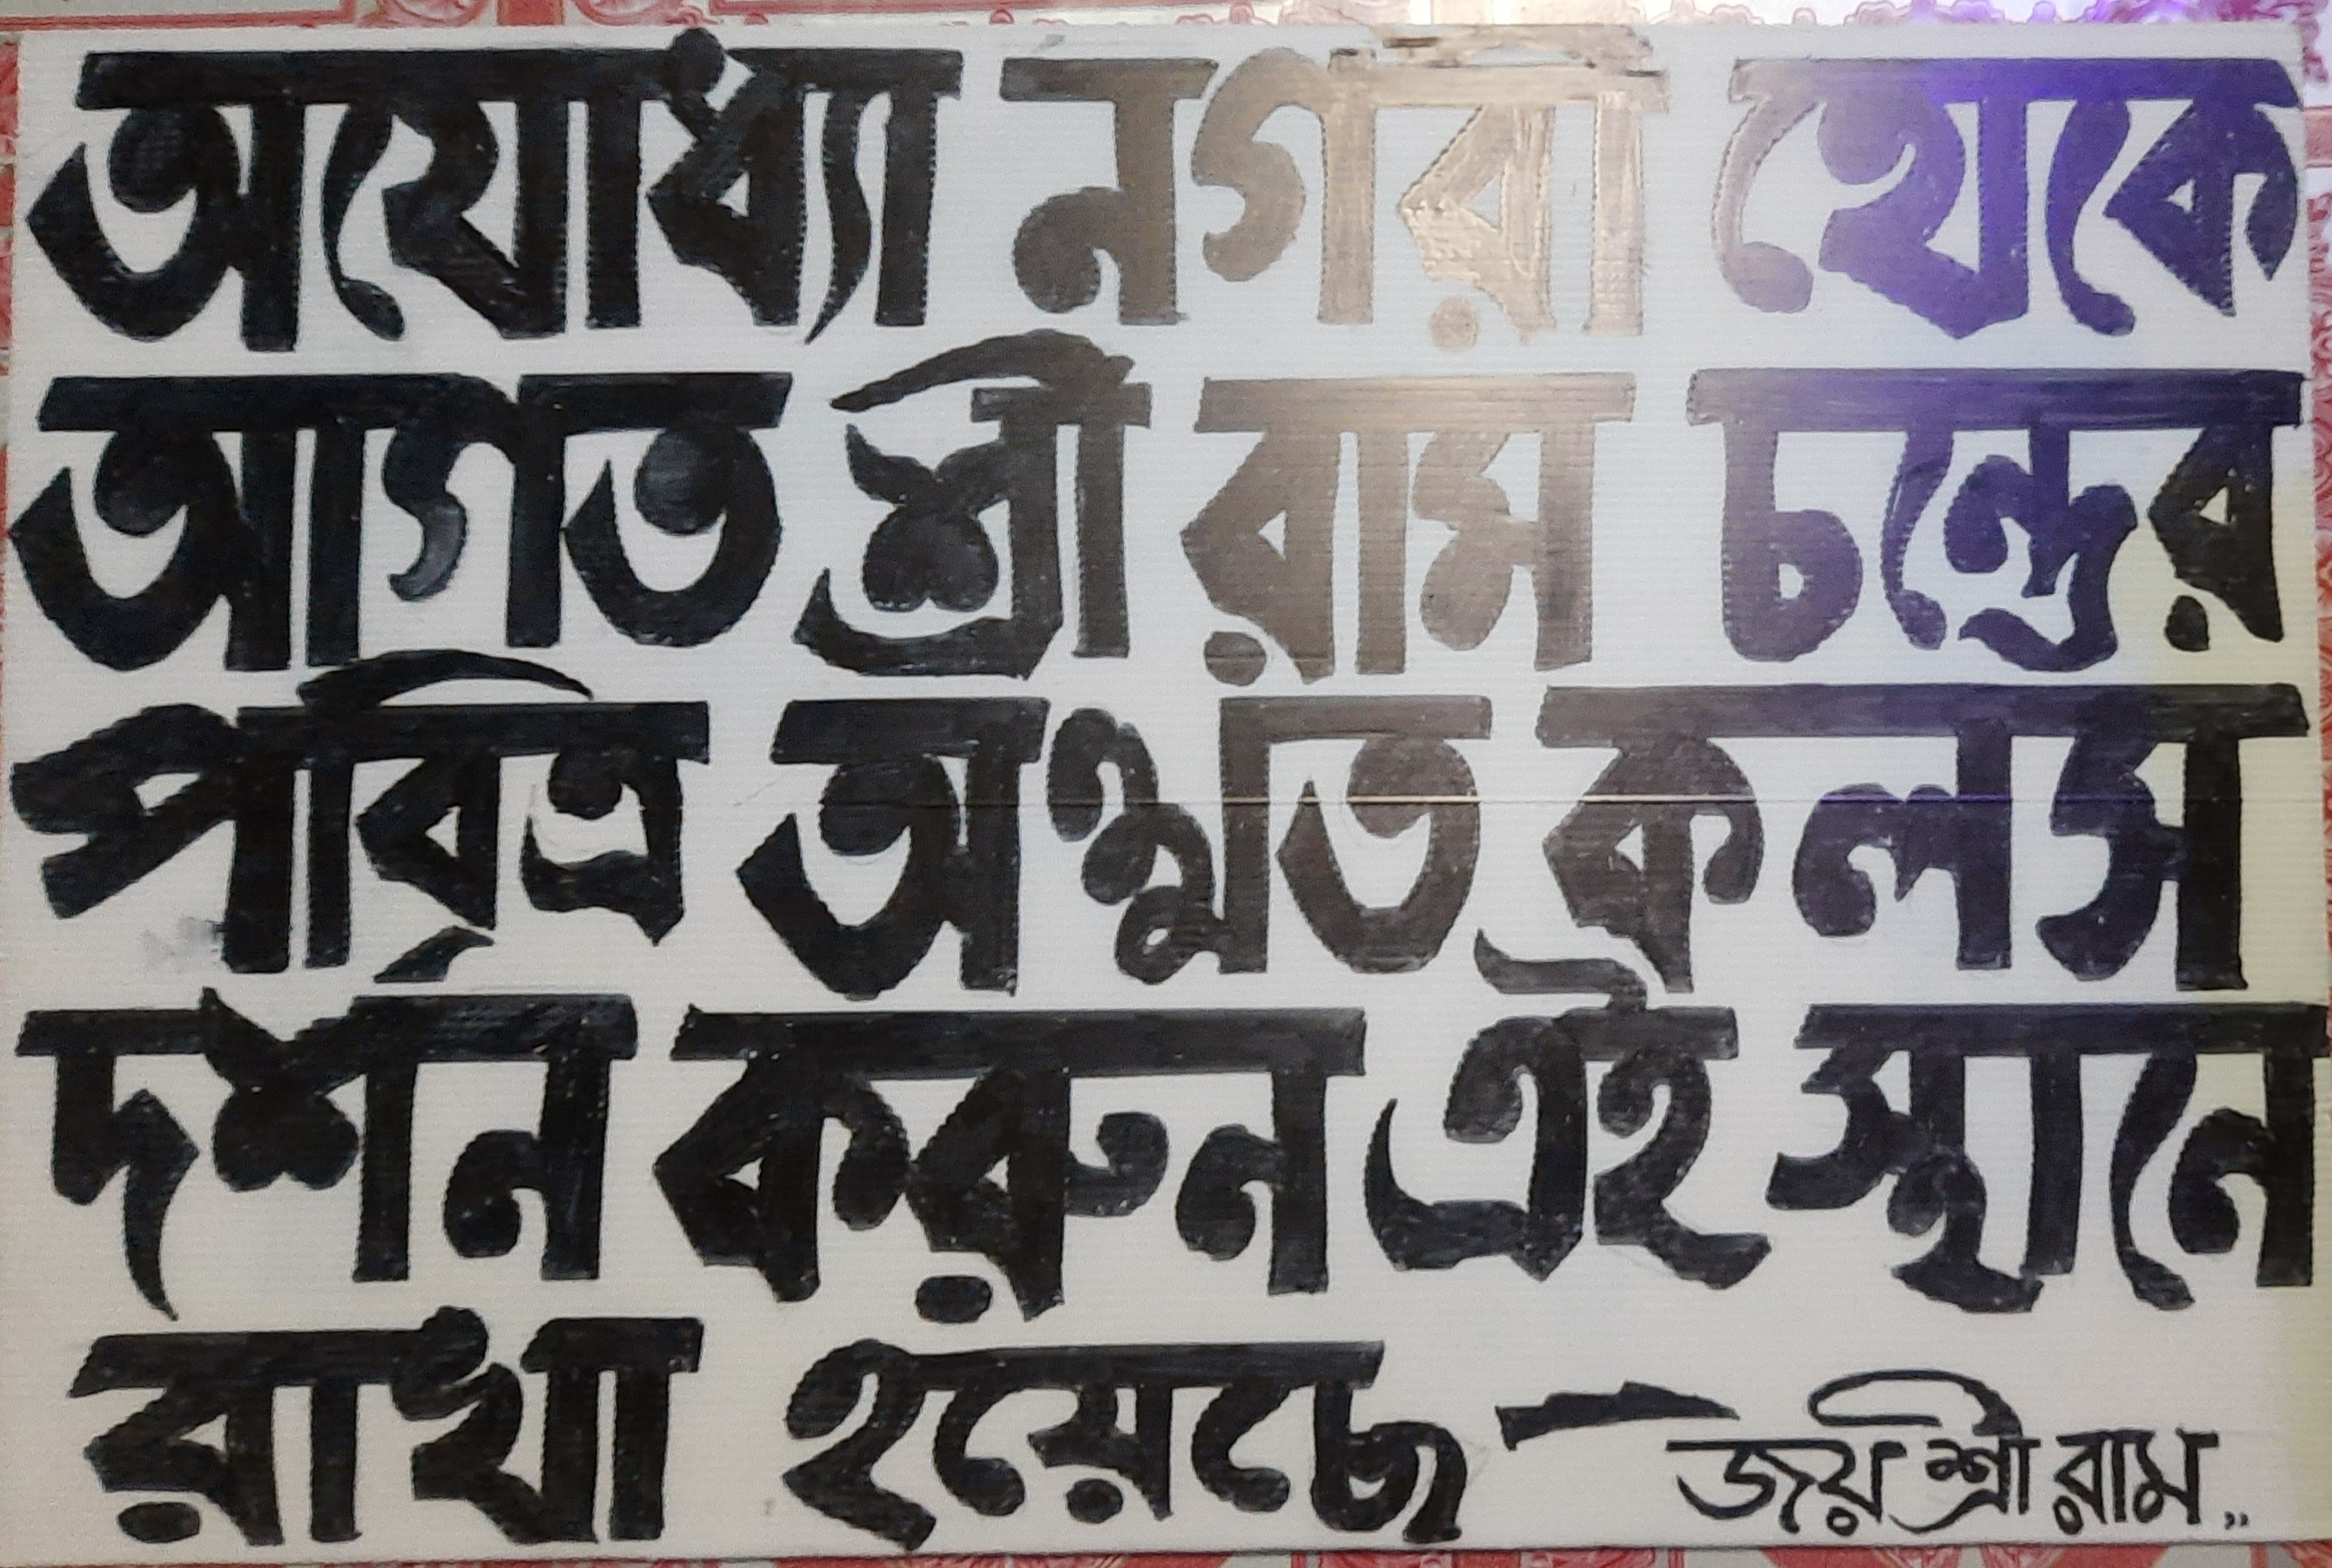 অযোধ্যা নগরী থেকে
আগত শ্রী রাম চন্দ্রের
পবিত্র অক্ষত কলস
দর্শন করুন এই স্থানে
রাখা হয়েছে – জয় শ্রী রাম..